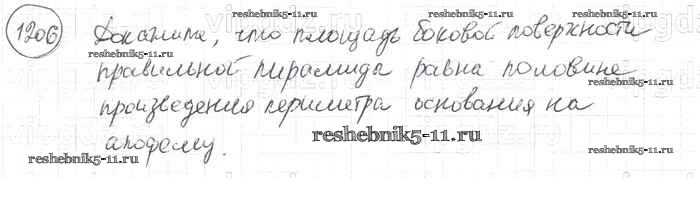 1206 Докажите, что площадь боковой поверхности
правильной пирамиды равна половине
произведения периметра основания на
апофему.
reshebnik5-11.ru
reshebnik5-11.ru
reshebnik5-11.ru
reshebnik5-11.ru
reshebnik5-11.ru